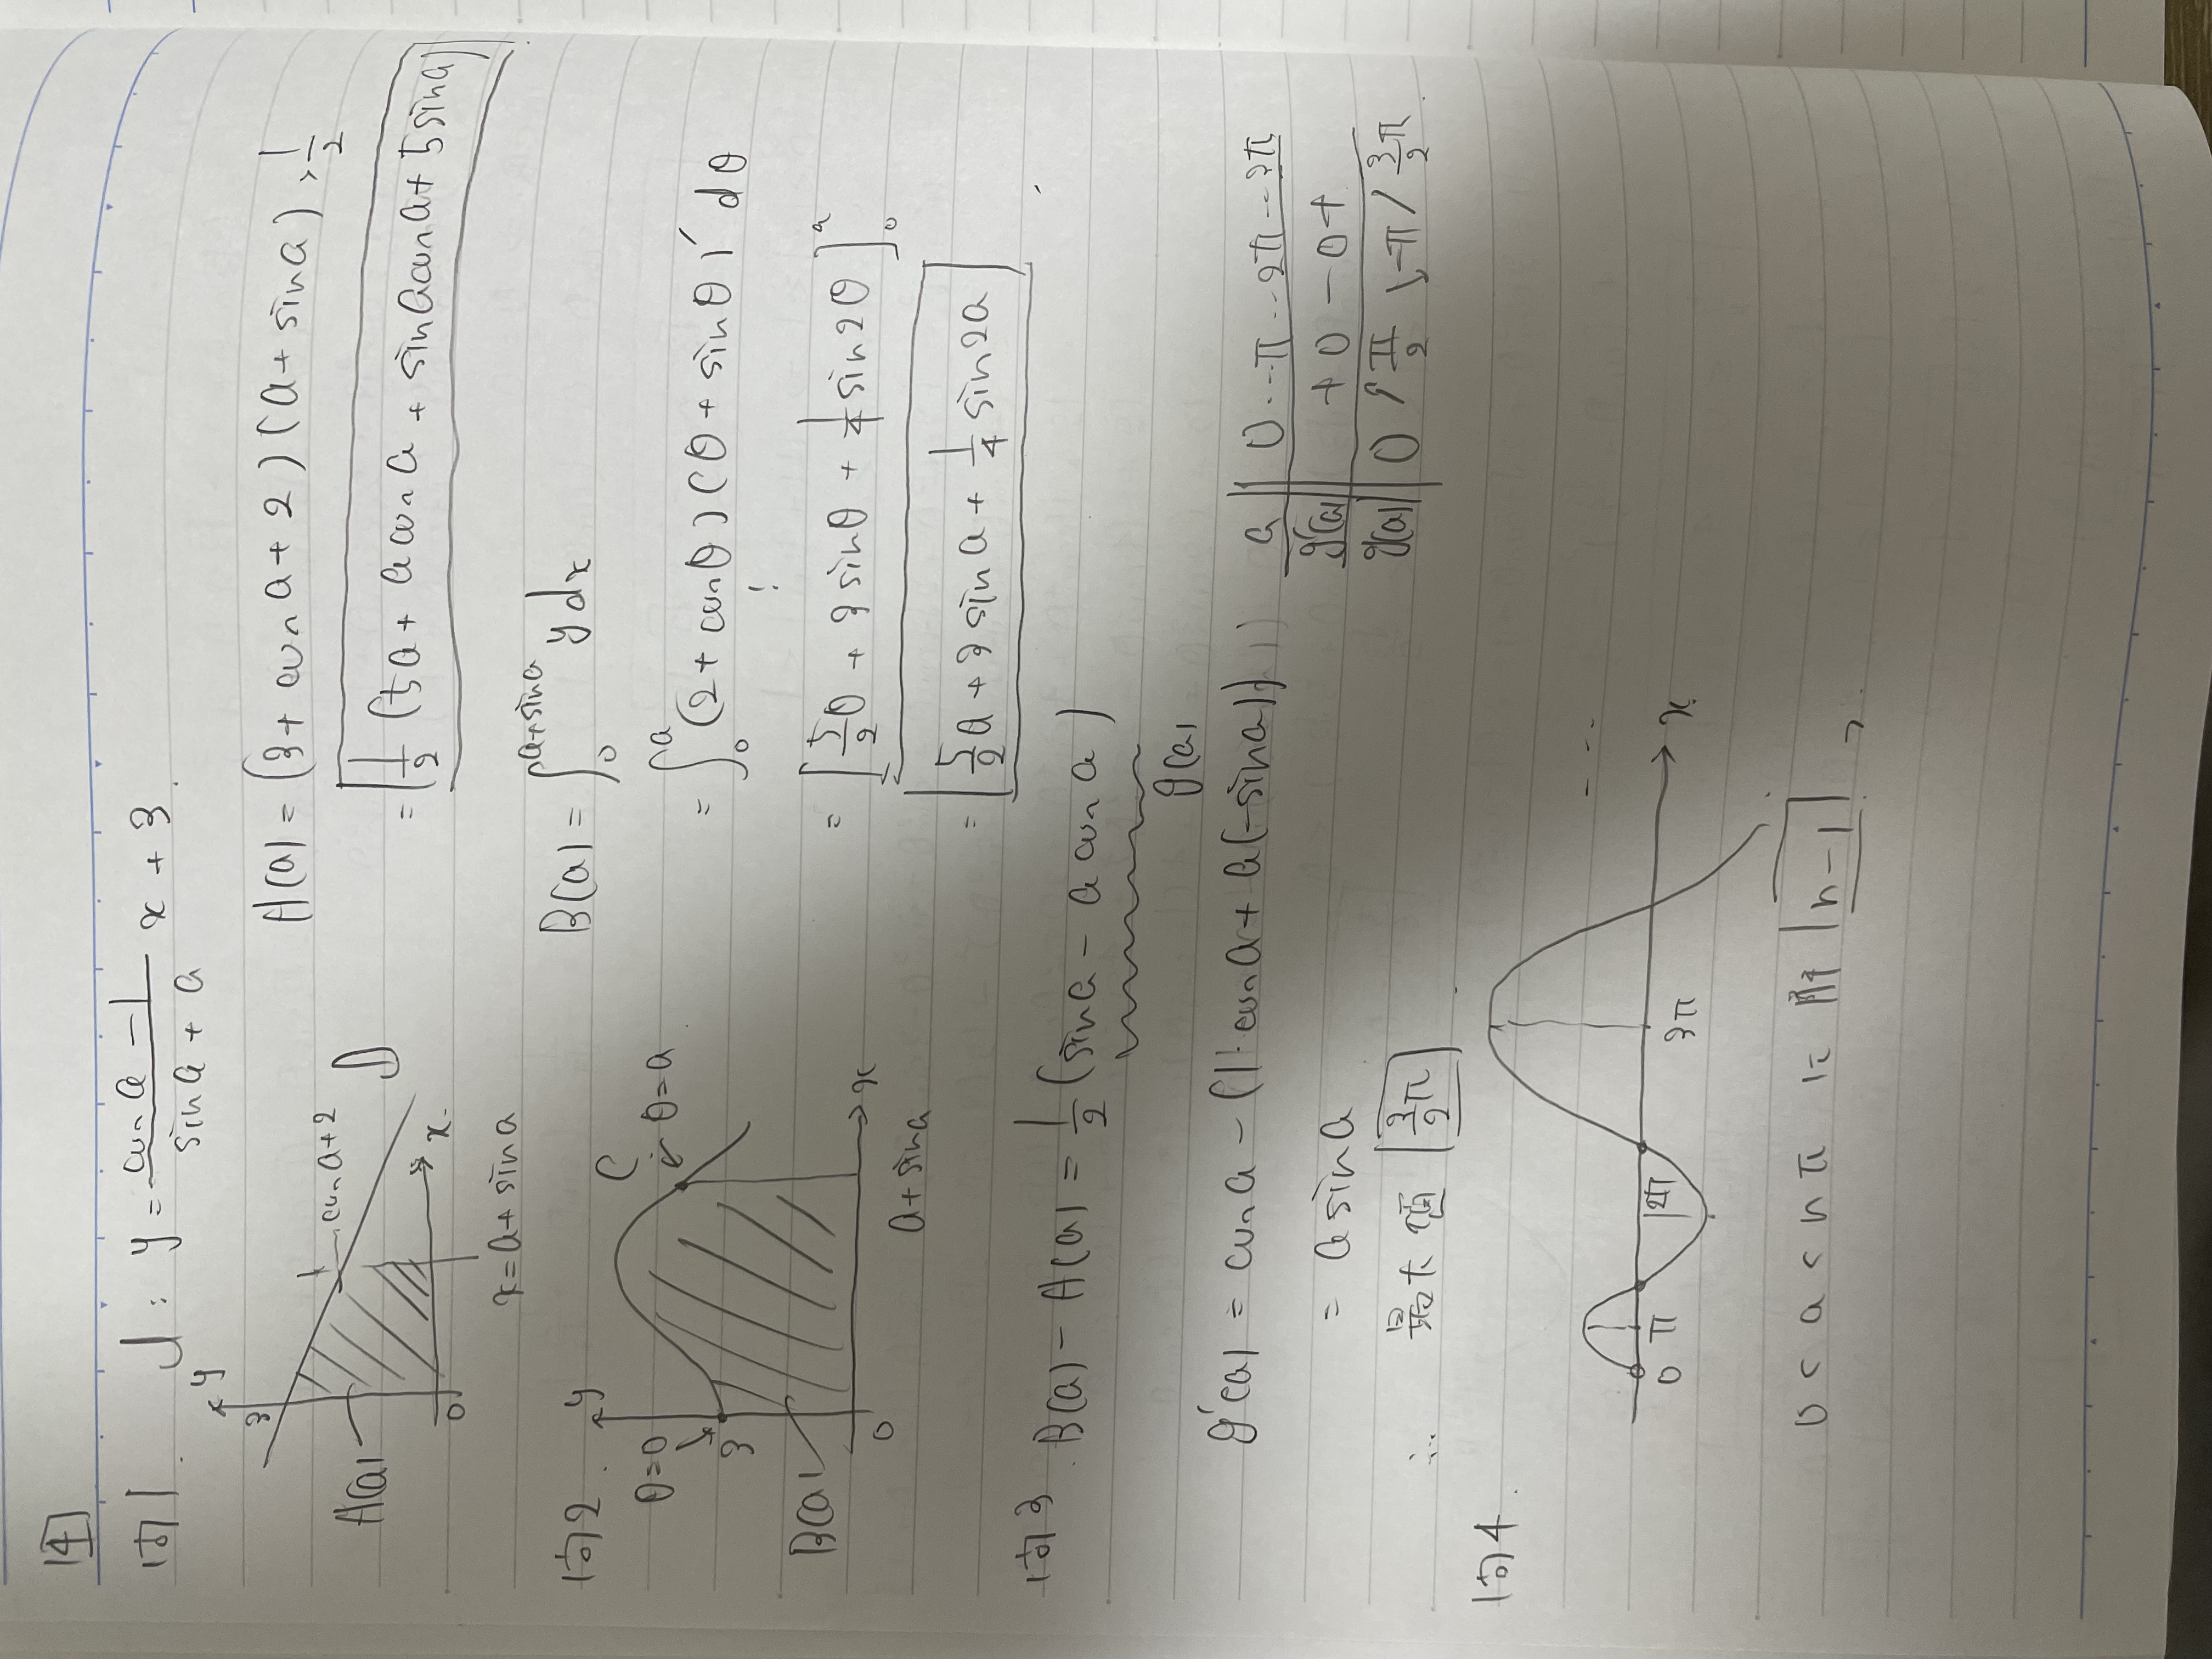 4
問1. l : y = (cos a - 1)/(sin a + a) x + 3
y
3
cos a + 2
l
A(a)
0
x
x = a + sin a
A(a) = (3 + cos a + 2)(a + sin a) × 1/2
= 1/2 (5a + a cos a + sin a cos a + 5 sin a)
問2.
y
θ=0
3
C
θ=a
B(a)
0
a + sin a
x
B(a) = ∫₀^(a+sin a) y dx
= ∫₀^a (2 + cos θ)(θ + sin θ)' dθ
⋮
= [5/2 θ + 3 sin θ + 1/4 sin 2θ]₀^a
= 5/2 a + 3 sin a + 1/4 sin 2a
問3. B(a) - A(a) = 1/2 (sin a - a cos a)
g(a)
g'(a) = cos a - (1·cos a + a(-sin a))
= a sin a
a | 0 … π … 2π … 3π
g'(a) | + 0 - 0 +
g(a) | 0 ↗ π/2 ↘ -π ↗ 3/2 π
∴ 最大値 3/2 π
問4.
0 π 2π 3π x
…
0 < a < nπ に 
n-1